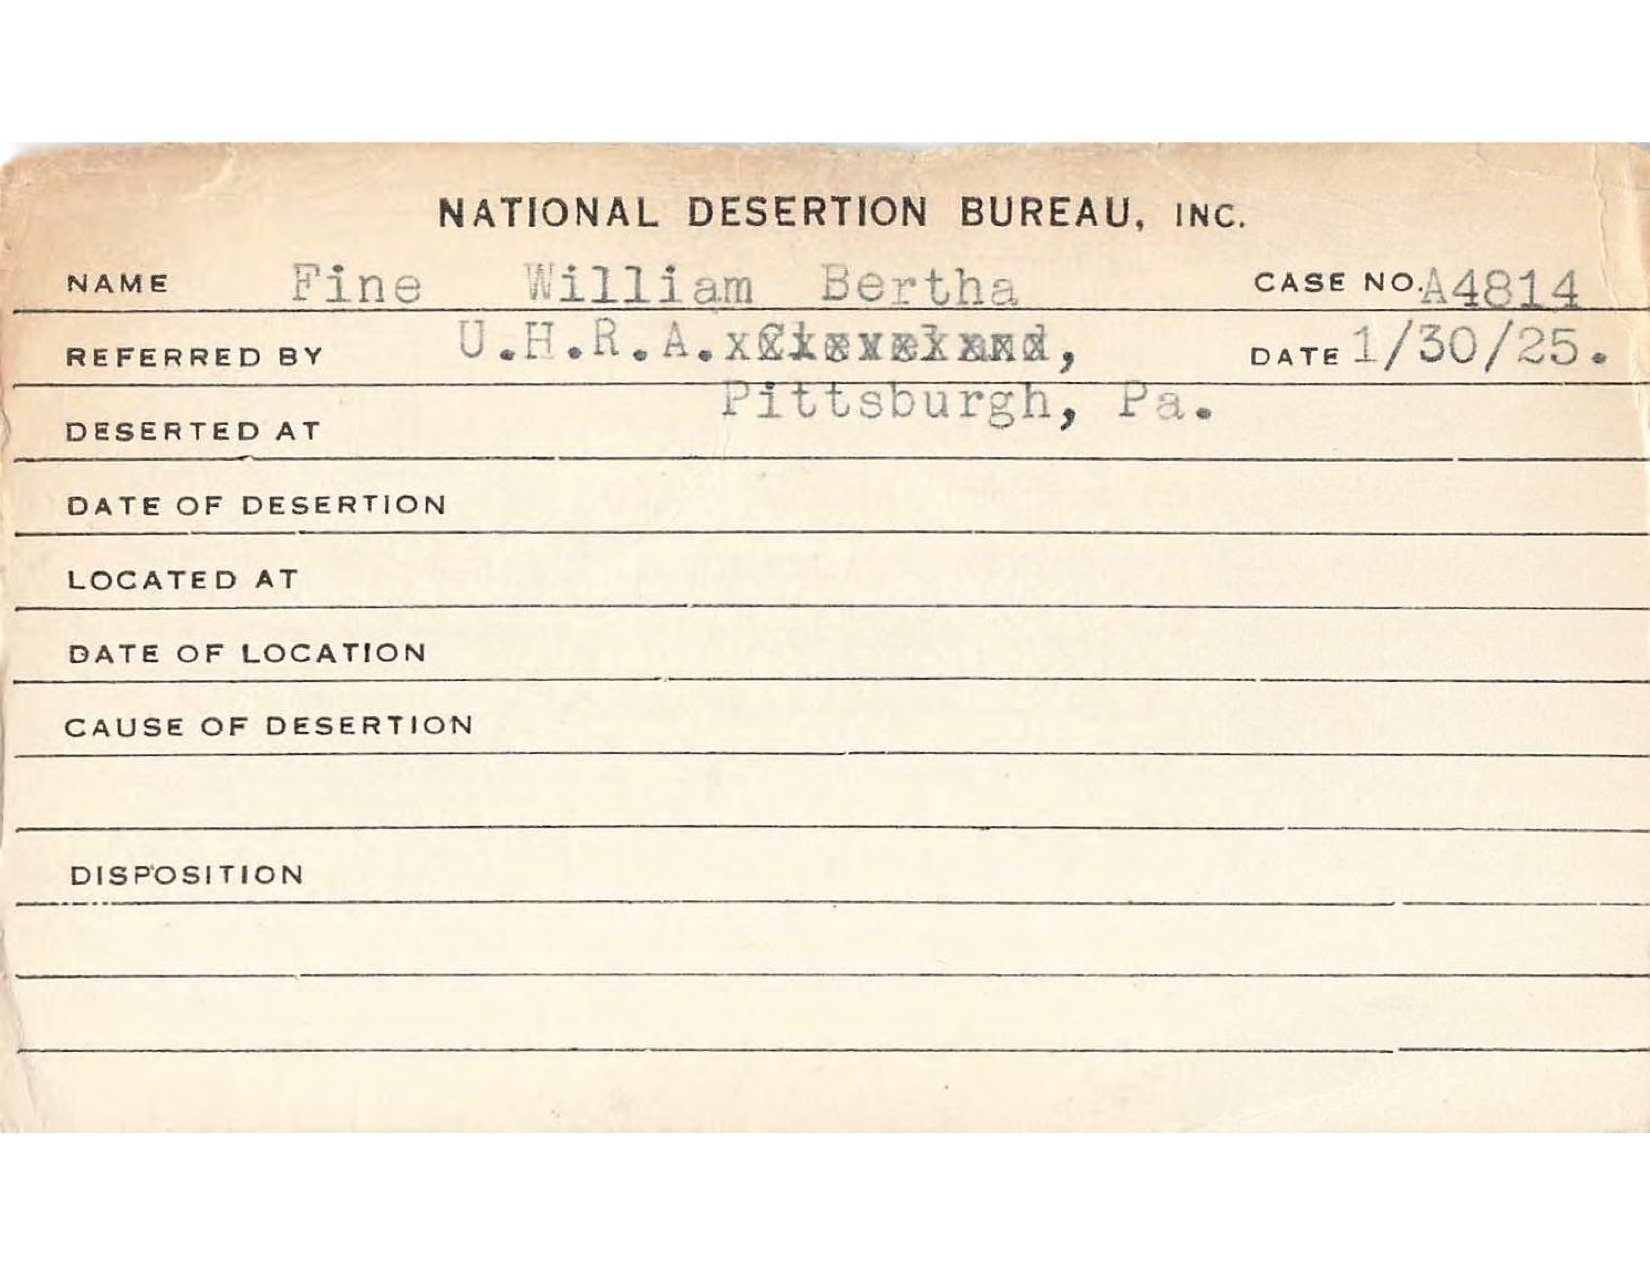 NATIONAL DESERTION BUREAU, INC.
NAME Fine William Bertha CASE NO. A4814
REFERRED BY U.H.R.A. Cleveland, DATE 1/30/25.
Pittsburgh, Pa.
DESERTED AT
DATE OF DESERTION
LOCATED AT
DATE OF LOCATION
CAUSE OF DESERTION
DISPOSITION